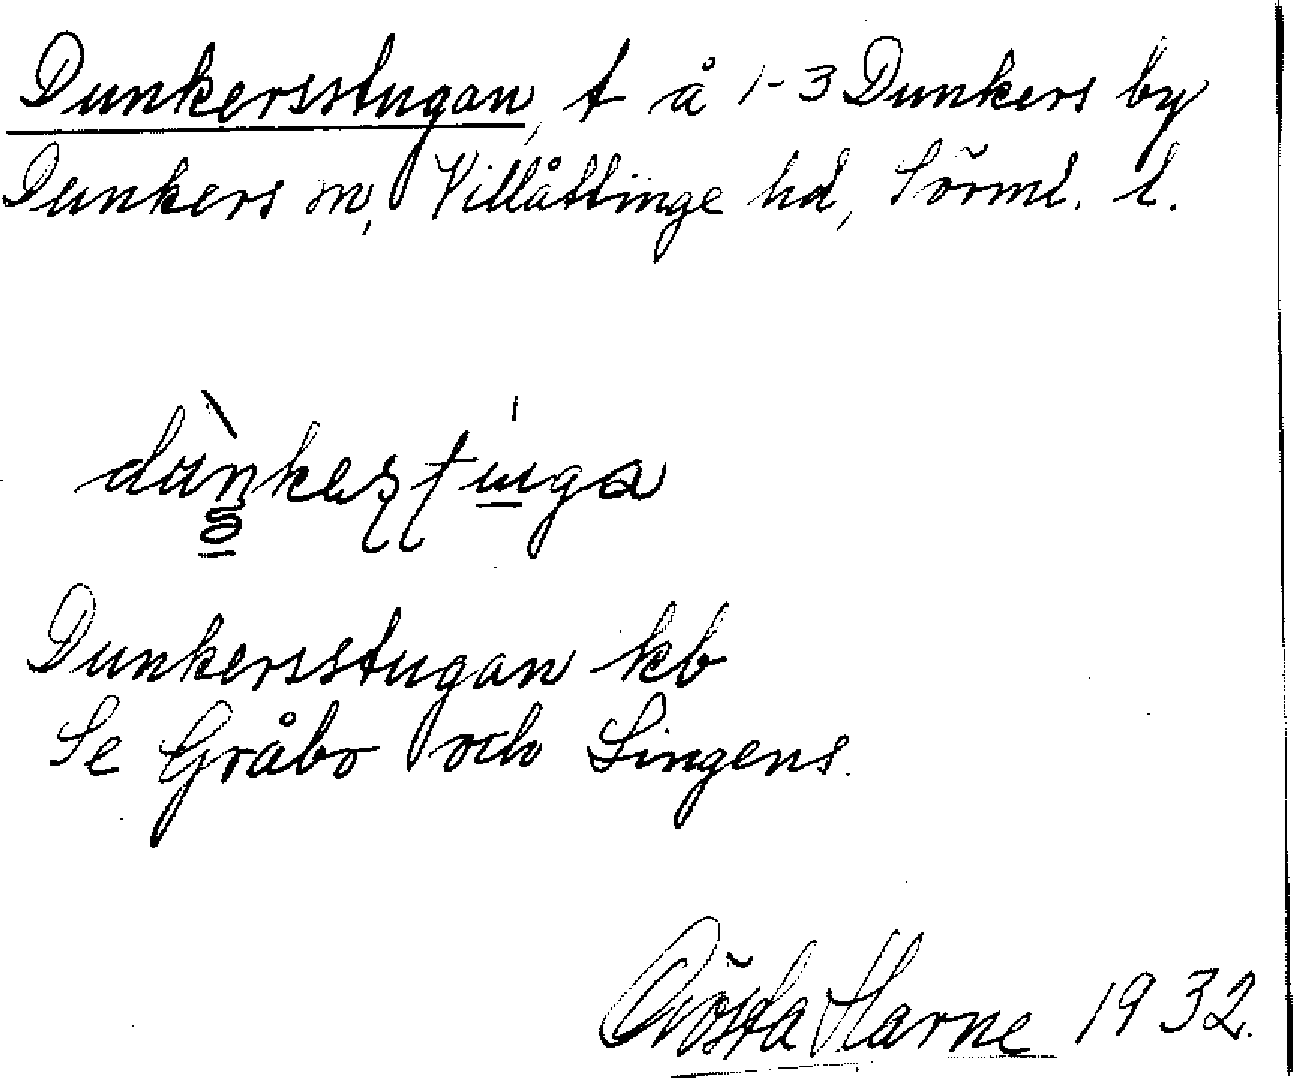 Dunkersstugan, t å 1-3 Dunkers by
Dunkers sn, Villåttinge hd, Sörml. l.
Dunkersstugan kb
Se Gråbo och Lingens.
Gösta Harne 1932.